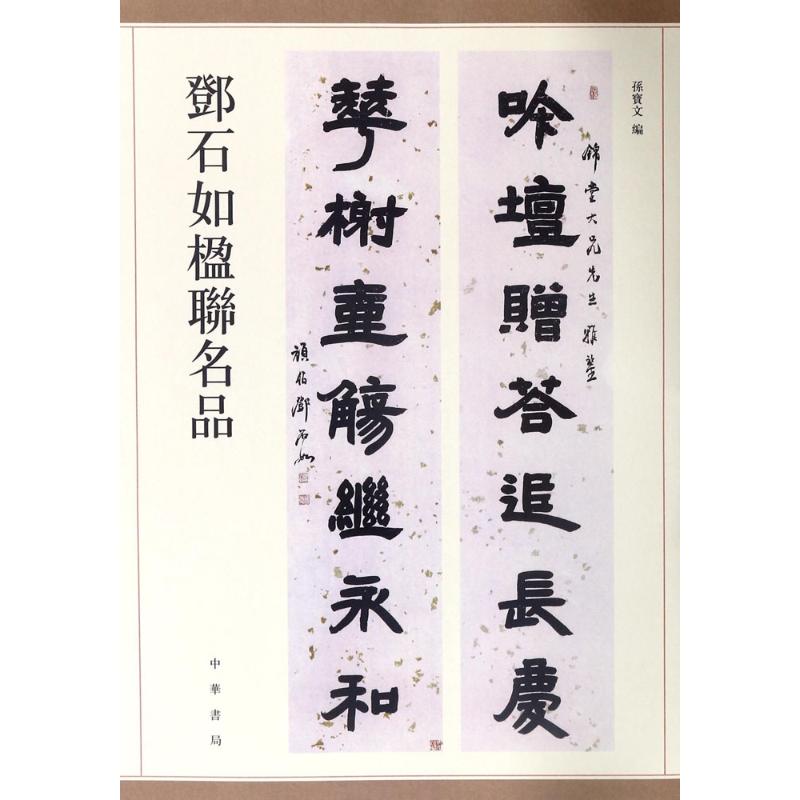 孫寶文 編
錦堂大兄先生雅鑒
吟壇贈荅追長慶
華榭壺觴繼永和
頑伯鄧石如
鄧石如楹聯名品
中華書局